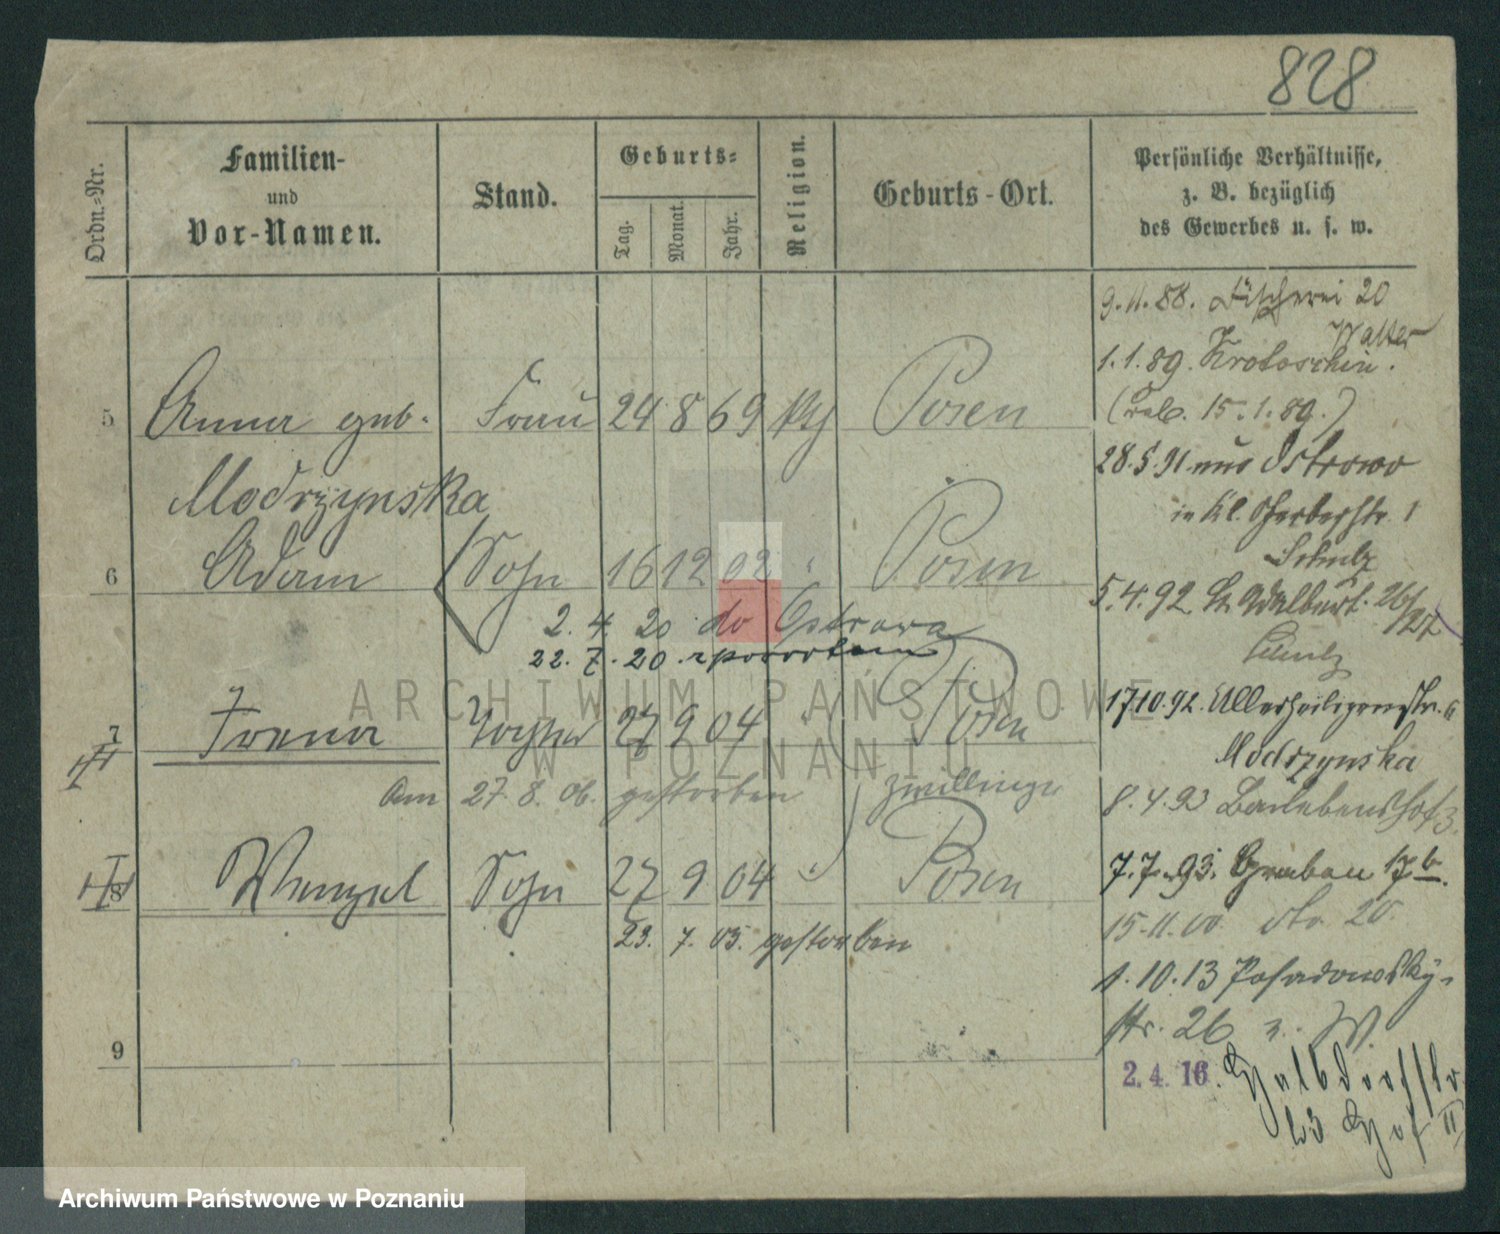 828
Ordn.-Nr.
Familien-
und
Vor-Namen.
Stand.
Geburts-
Tag.
Monat.
Jahr.
Religion.
Geburts-Ort.
Persönliche Verhältnisse,
z. B. bezüglich
des Gewerbes u. s. w.
5 Anna geb. Frau 24 8 69 Posen
Modrzynska
6 Adam Sohn 16 12 02 " Posen
2. 4. 20 do Ostrowa
22. 7. 20
7 Irena Tochter 27 9 04 " Posen
am 27. 8. 06. gestorben Zwillinge
8 Wenzel Sohn 27 9 04 " Posen
23. 7. 05. gestorben
9
9.11.88. Fischerei 20
Walter
1.1.89. Krotoschin.
15.1.89.)
28.5.91 aus Ostrowo
in Kl. Gerberstr. 1
Schulz
5.4.92 St. Adalbert. 26/27
Schulz
17.10.92. Allerheiligenstr. 6
Modrzynska
8.4.93 Barlebenshof 3.
7.7.93. Graben 17b.
15.11.00. do. 20
1.10.13 Posadowsky-
str. 26 z. W.
2.4.16. Halbdorfstr.
23 Hof II
ARCHIWUM PAŃSTWOWE
W POZNANIU
Archiwum Państwowe w Poznaniu